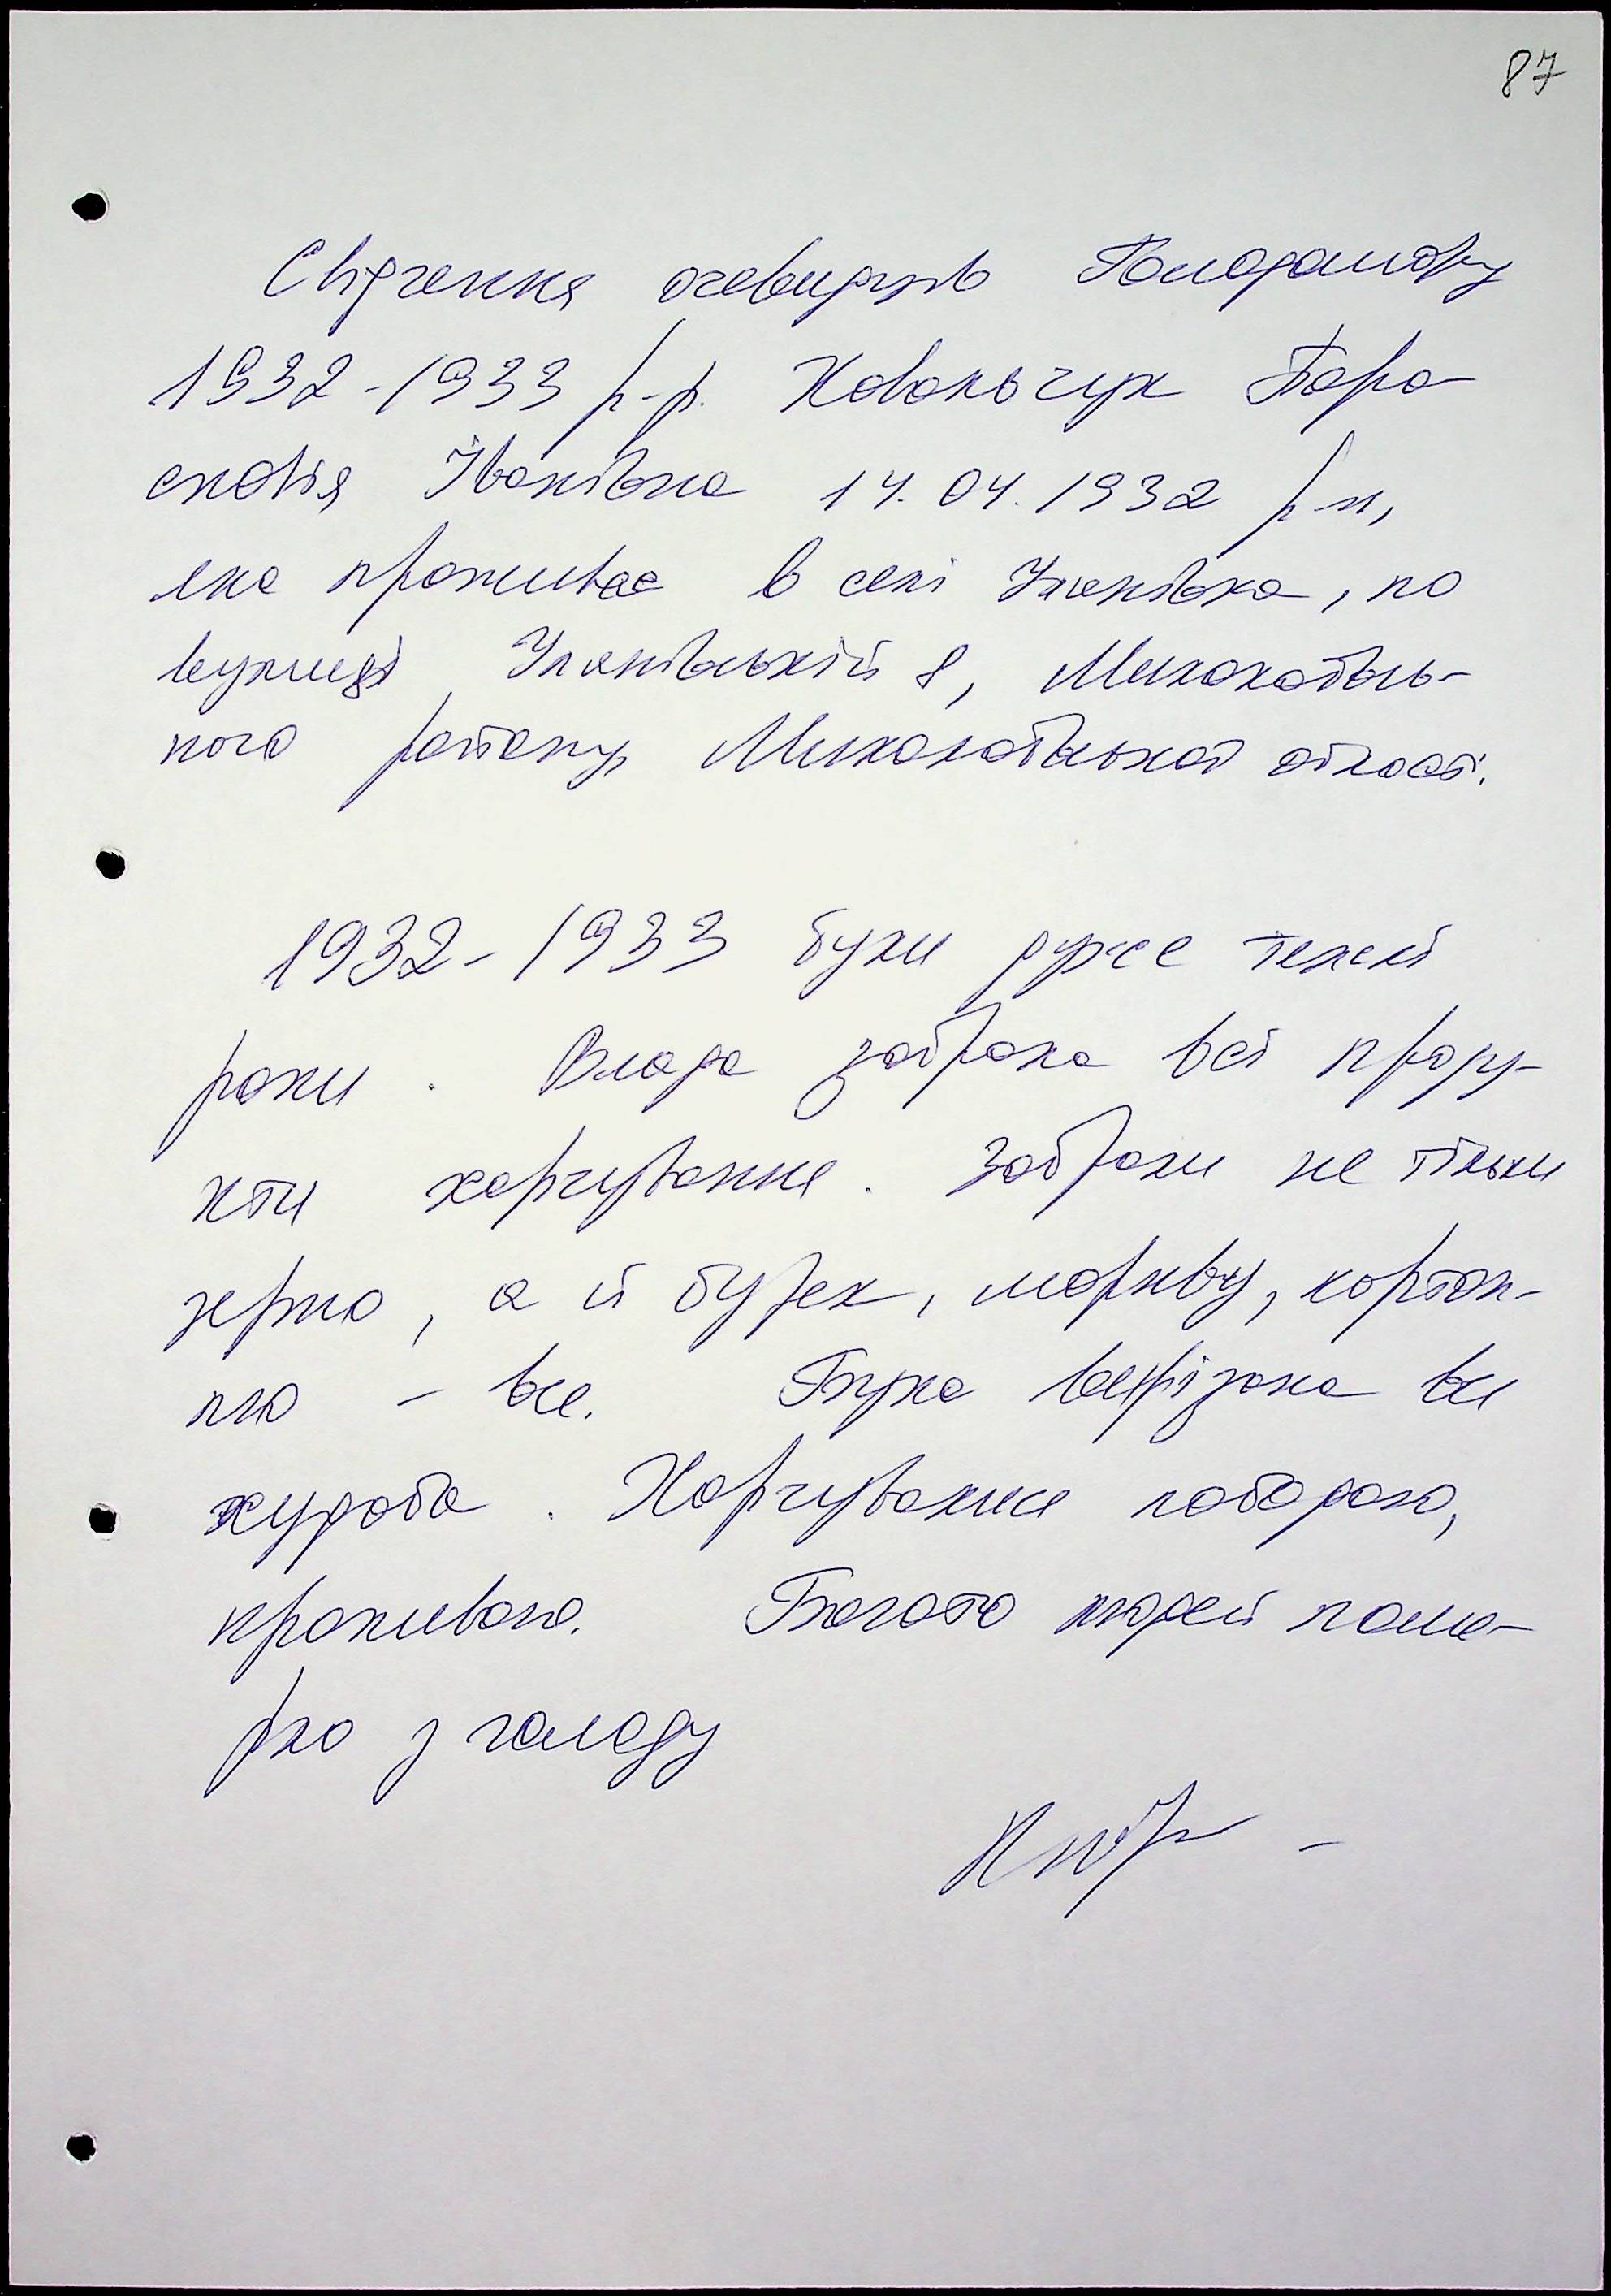 87
Свідчення очевидців Голодомору
1932-1933 р-р. Ковальчук Пара-
сковія Іванівна 14.04.1932 р н,
яка проживає в селі Улянівка, по
вулиці Улянівській 8, Миколаївсь-
кого району Миколаївської област.
1932-1933 були дуже тяжкі
роки. Влада забрала всі проду-
кти харчування. Забрали не тільки
зерно, а й буряк, моркву, картоп-
лю - все. Була вирізана вся
худоба. Харчувались лободою,
кропивою. Багато людей поме-
рло з голоду